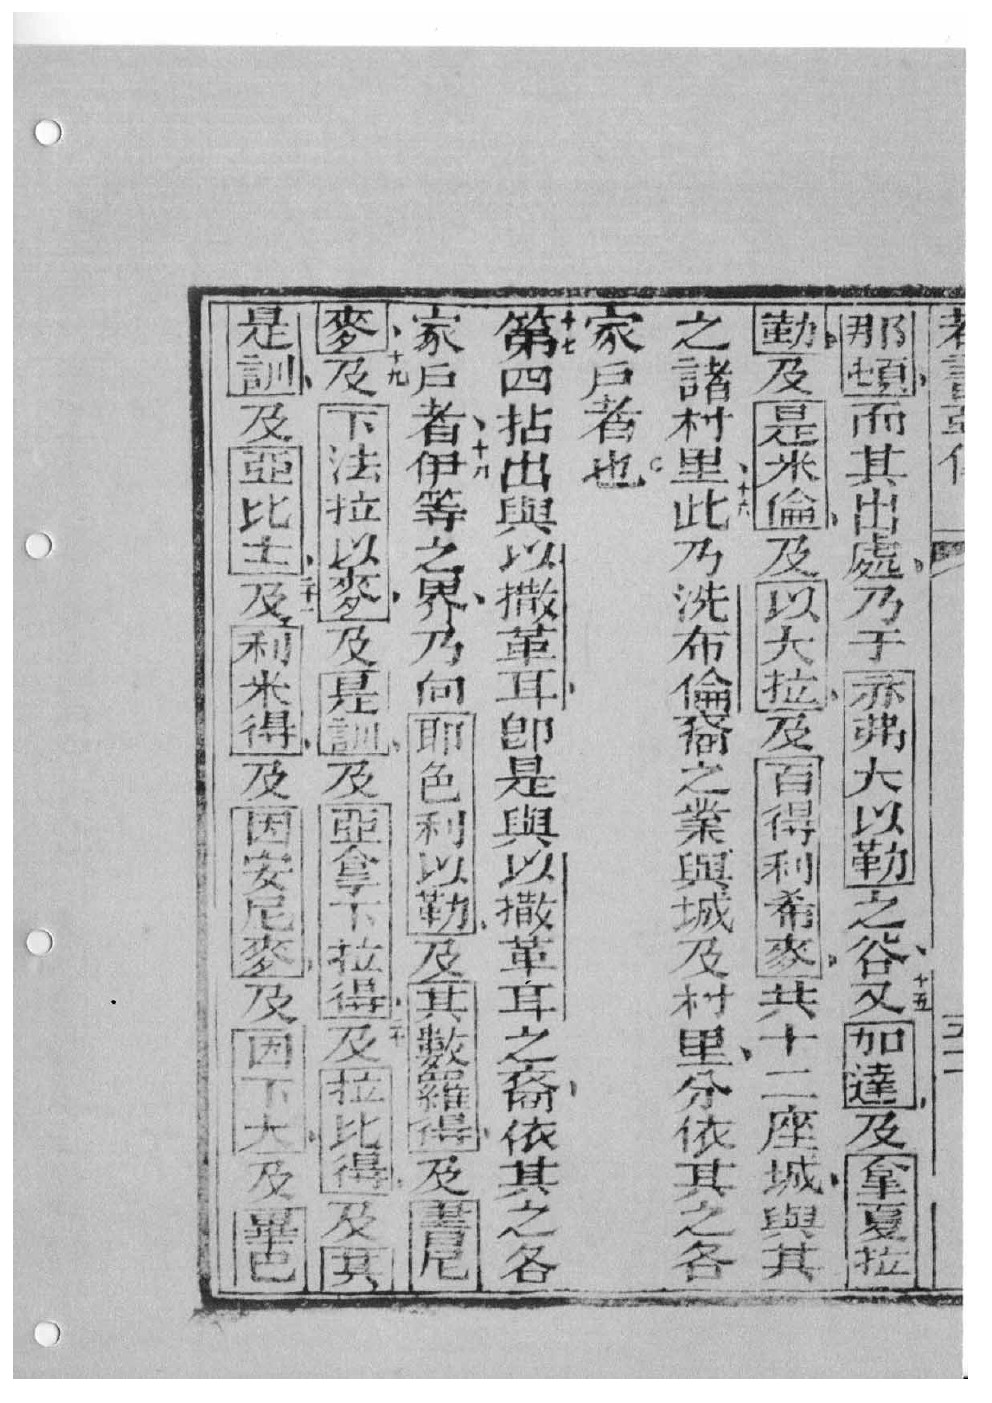 若書亞傳
那頓而其出處乃于亦弗大以勒之谷十五又加達及拿夏拉
勒及是米倫及以大拉及百得利希麥共十二座城與其
之諸村里十六此乃洗布倫裔之業與城及村里分依其之各
家戶者也
十七第四拈出與以撒革耳卽是與以撒革耳之裔依其之各
家戶者十八伊等之界乃向耶色利以勒及其數羅得及書尼
麥十九及下法拉以麥及是訓及亞拿下拉得二十及拉比得及其
是訓及亞比士二十一及利米得及因安尼麥及因下大及畢巴